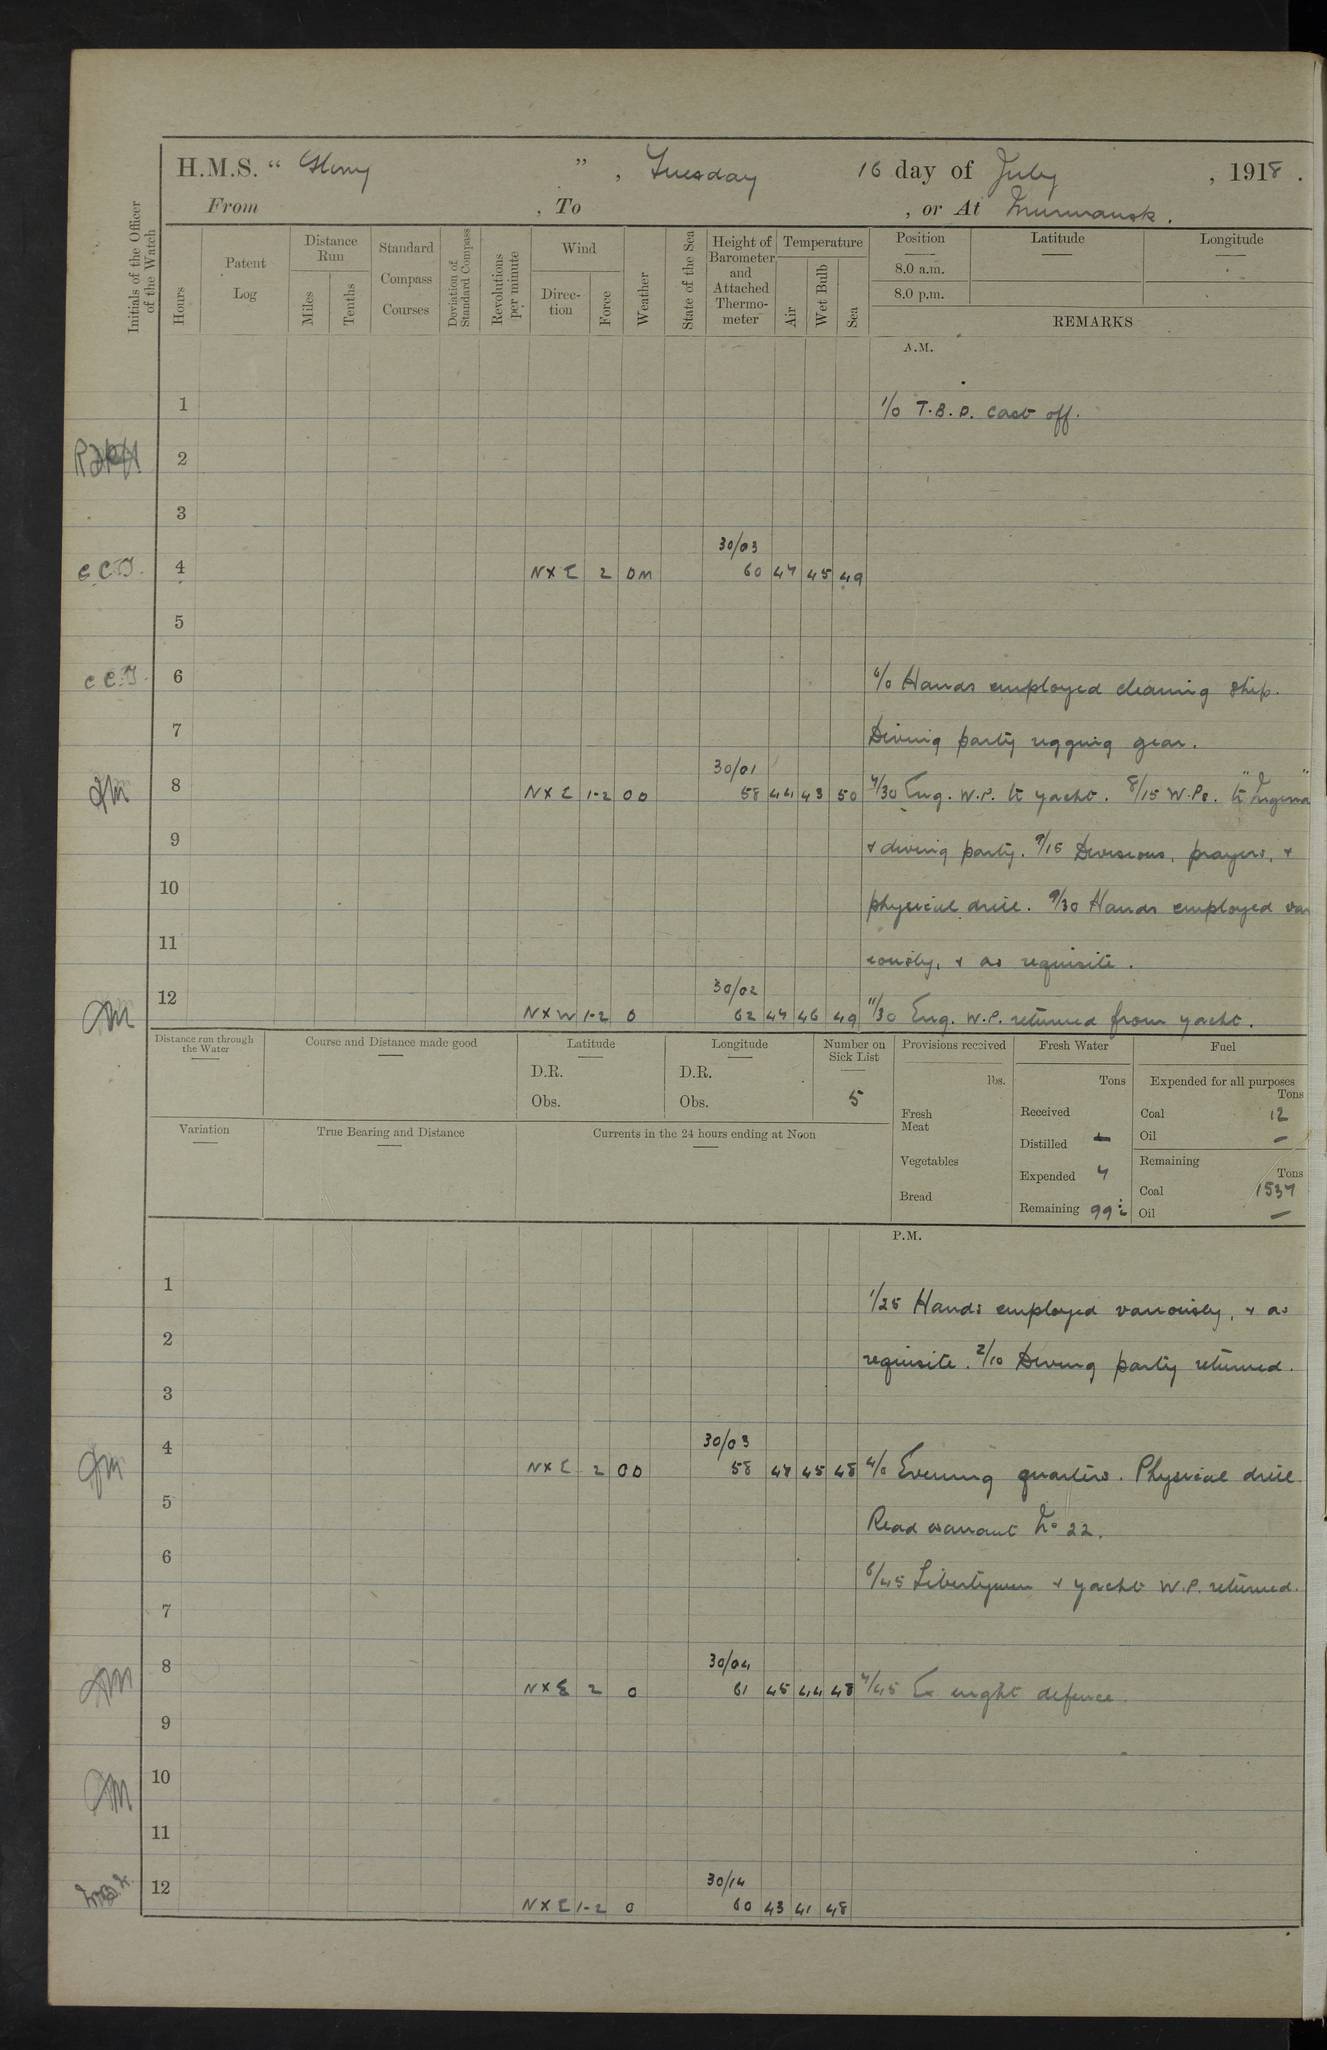 H.M.S. “ Glory ”, Tuesday 16 day of July, 1918.
From , To , or At Murmansk.
Initials of the Officer of the Watch
Hours
Patent Log
Distance Run
Miles
Tenths
Standard Compass Courses
Deviation of Standard Compass
Revolutions per minute
Wind
Direc-tion
Force
Weather
State of the Sea
Height of Barometer and Attached Thermo-meter
Temperature
Air
Wet Bulb
Sea
Position
8.0 a.m.
8.0 p.m.
Latitude
Longitude
REMARKS
A.M.
1 1/0 T.B.D. cast off.
2
3
30/03
C C J. 4 N X E 2 O M 60 47 45 49
5
C C J. 6 6/0 Hands employed cleaning ship.
7 Diving party rigging gear.
30/01
8 N X E 1-2 O D 58 44 43 50 7/30 Eng. W.P. to yacht. 8/15 W.Ps. to
9 & diving party. 9/15 Divisions, prayers, &
10 physical drill. 9/30 Hands employed var
11 iously, & as requisite.
30/02
12 N X W 1-2 O 62 47 46 49 11/30 Eng. W.P. returned from yacht.
Distance run through the Water
Course and Distance made good
Latitude
D.R.
Obs.
Longitude
D.R.
Obs.
Number on Sick List
5
Provisions received
lbs.
Fresh Meat
Vegetables
Bread
Fresh Water
Tons
Received
Distilled -
Expended 7
Remaining 99
Fuel
Expended for all purposes
Tons
Coal 12
Oil -
Remaining
Tons
Coal 1537
Oil -
Variation
True Bearing and Distance
Currents in the 24 hours ending at Noon
P.M.
1 1/25 Hands employed variously, & as
2 requisite. 2/10 Diving party returned.
3
30/03
4 N X E 2 O D 58 47 45 48 4/0 Evening quarters. Physical drill
5 Read warrant No 22.
6 6/45 Libertymen & yacht W.P. returned.
7
30/04
8 N X E 2 O 61 45 44 48 7/45 Ex night defence.
9
10
11
30/14
12 N X E 1-2 O 60 43 41 48